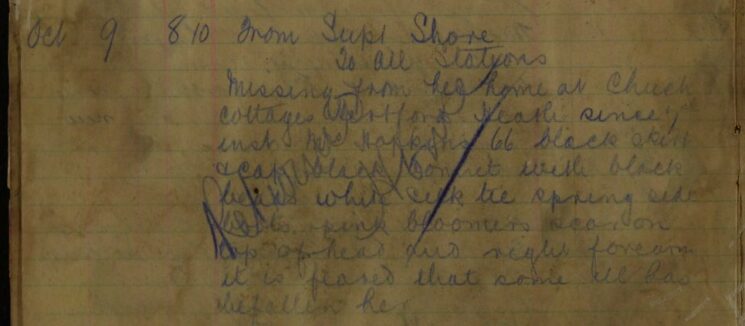 Oct 9 8 10 From Supt Shore
To All Stations
Missing from her home at Church
Cottages Hertford Heath since 7th
inst Mrs Hopkins 66 black skirt
& cape black bonnet with black
beads white silk tie spring side
boots pink bloomers scar on
top of head and right forearm
it is feared that some ill has
befallen her